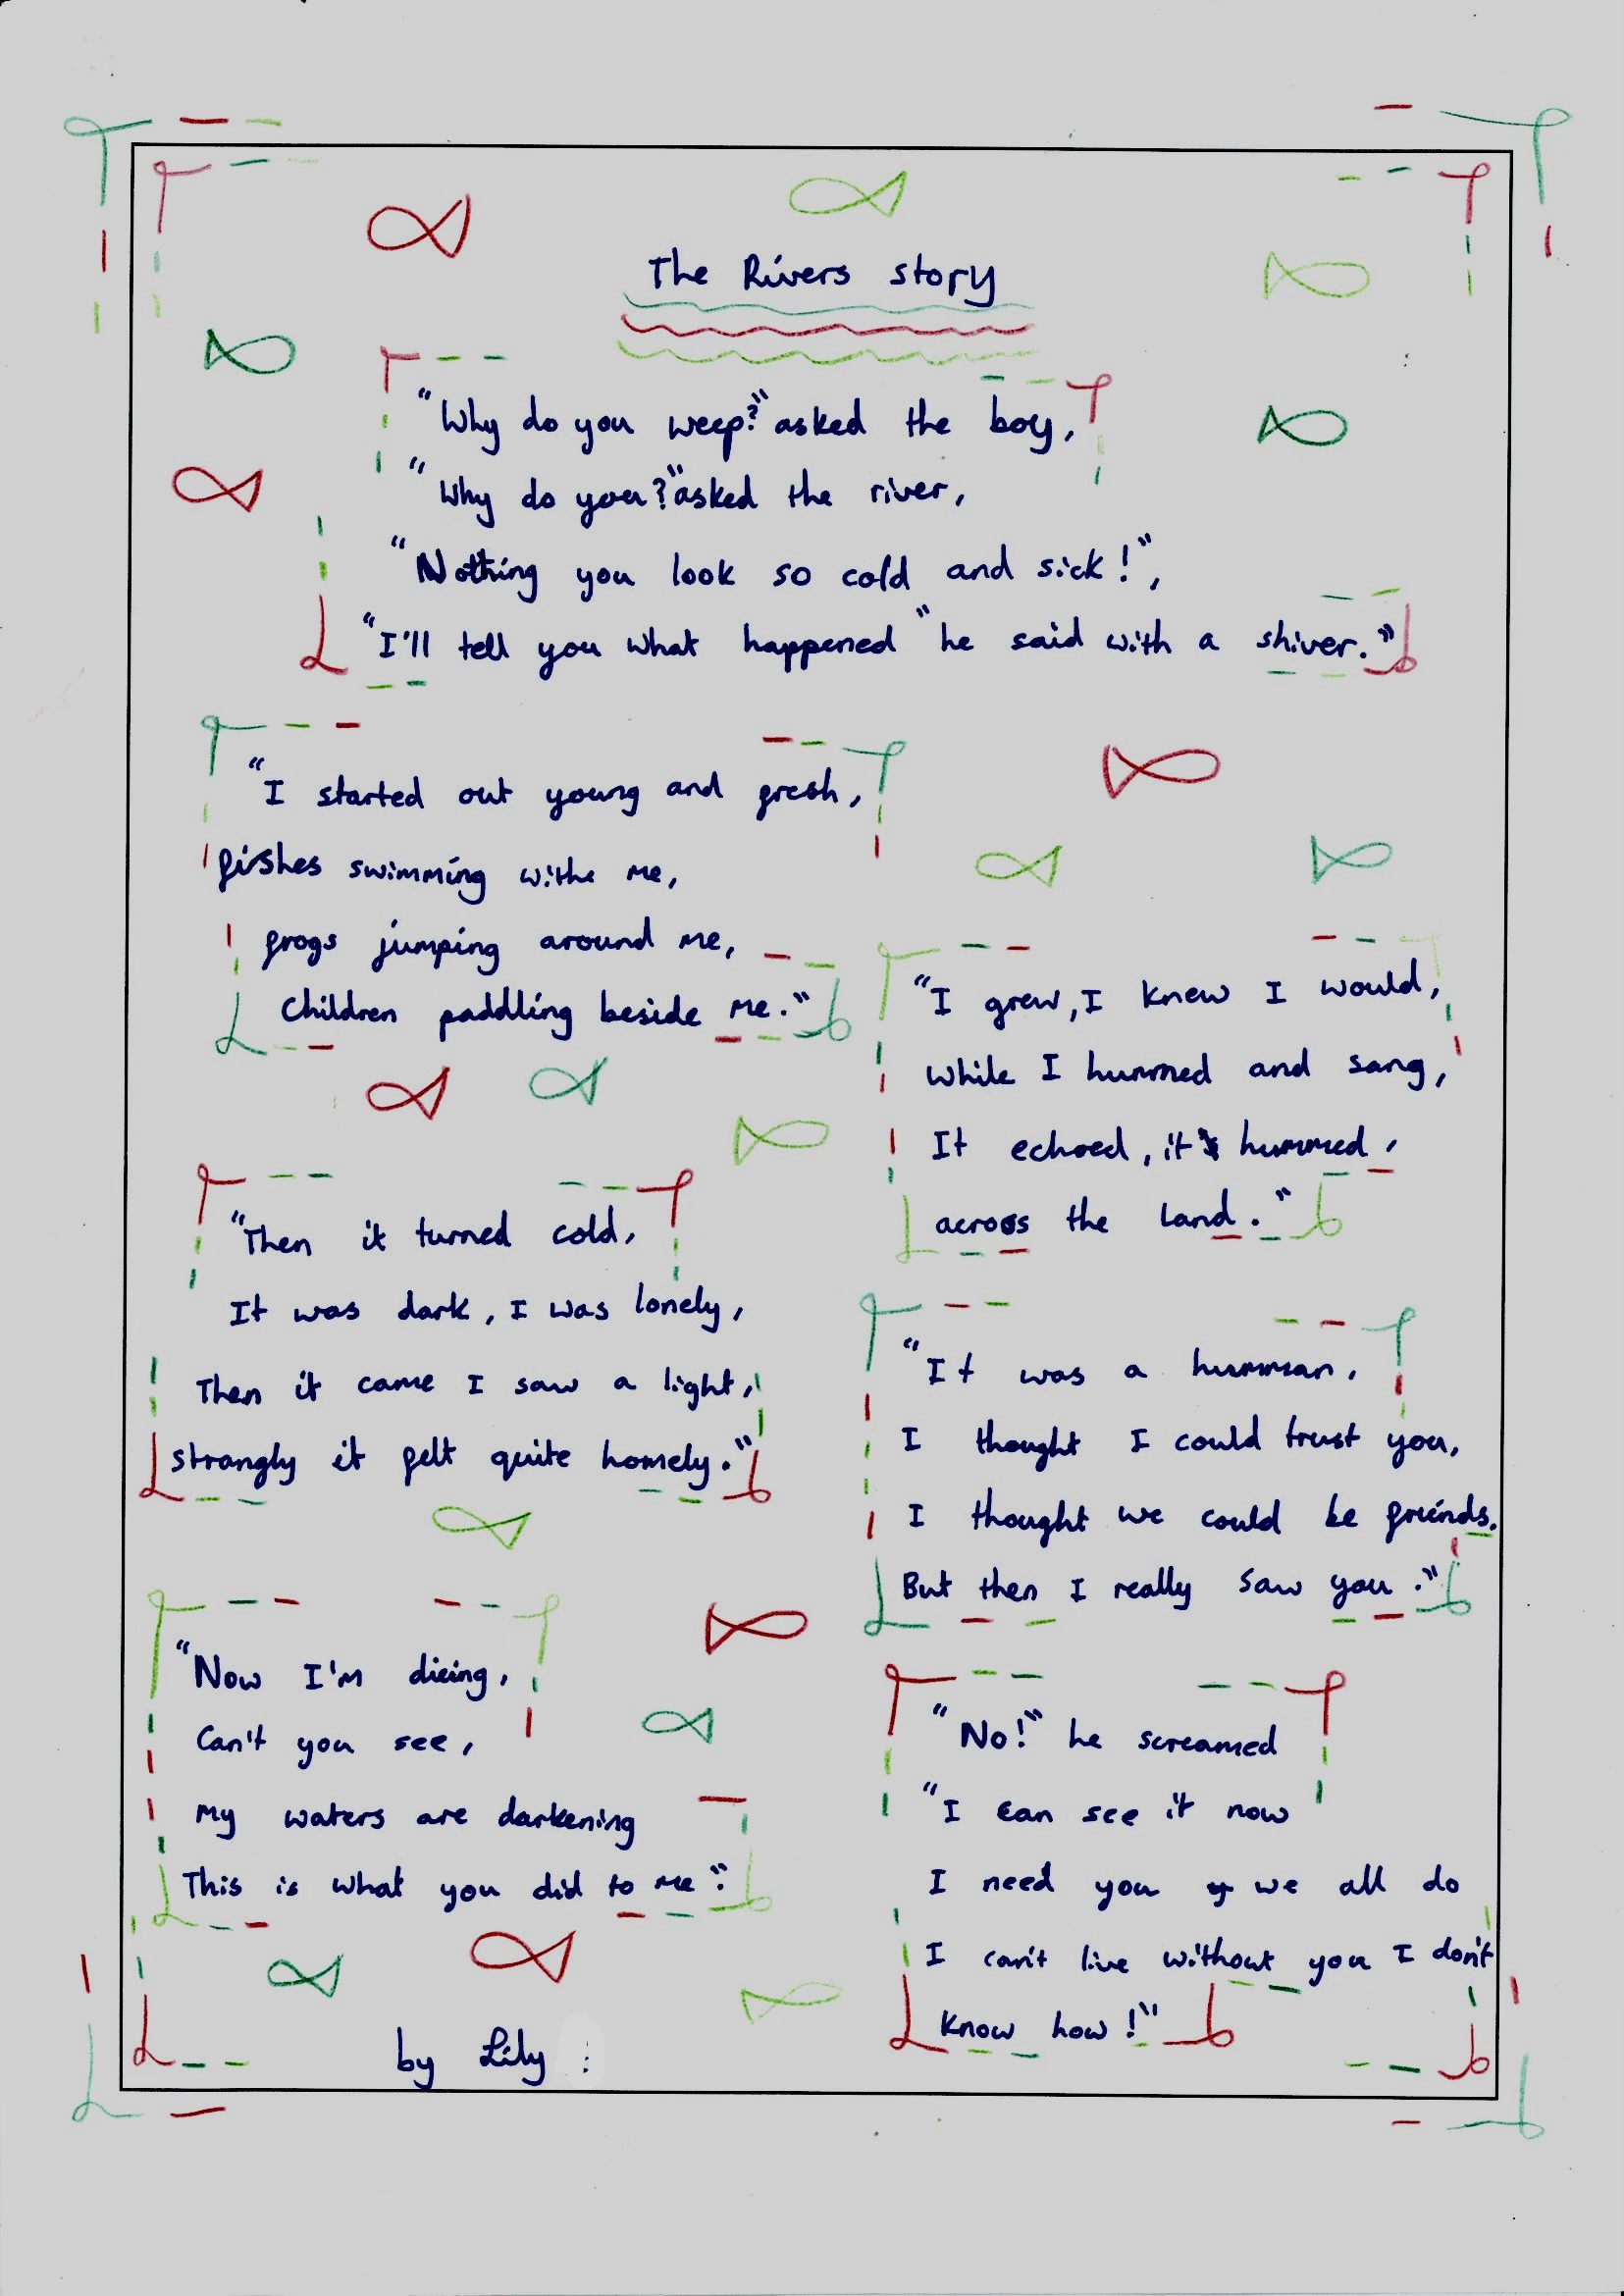 The Rivers story
"Why do you weep?" asked the boy,
"Why do you?" asked the river,
"Nothing you look so cold and sick!",
"I'll tell you what happened" he said with a shiver."
"I started out young and fresh,
fishes swimming withe me,
frogs jumping around me,
Children paddling beside me."
"I grew, I knew I would,
While I hummed and sang,
It echoed, it hummed,
across the land."
"Then it turned cold,
It was dark, I was lonely,
Then it came I saw a light,
strangly it felt quite homely."
"It was a humman,
I thought I could trust you,
I thought we could be friends.
But then I really saw you."
"Now I'm dieing,
Can't you see,
My waters are darkening
This is what you did to me".
"No!" he screamed
"I can see it now
I need you we all do
I can't live without you I don't
know how!"
by Lily